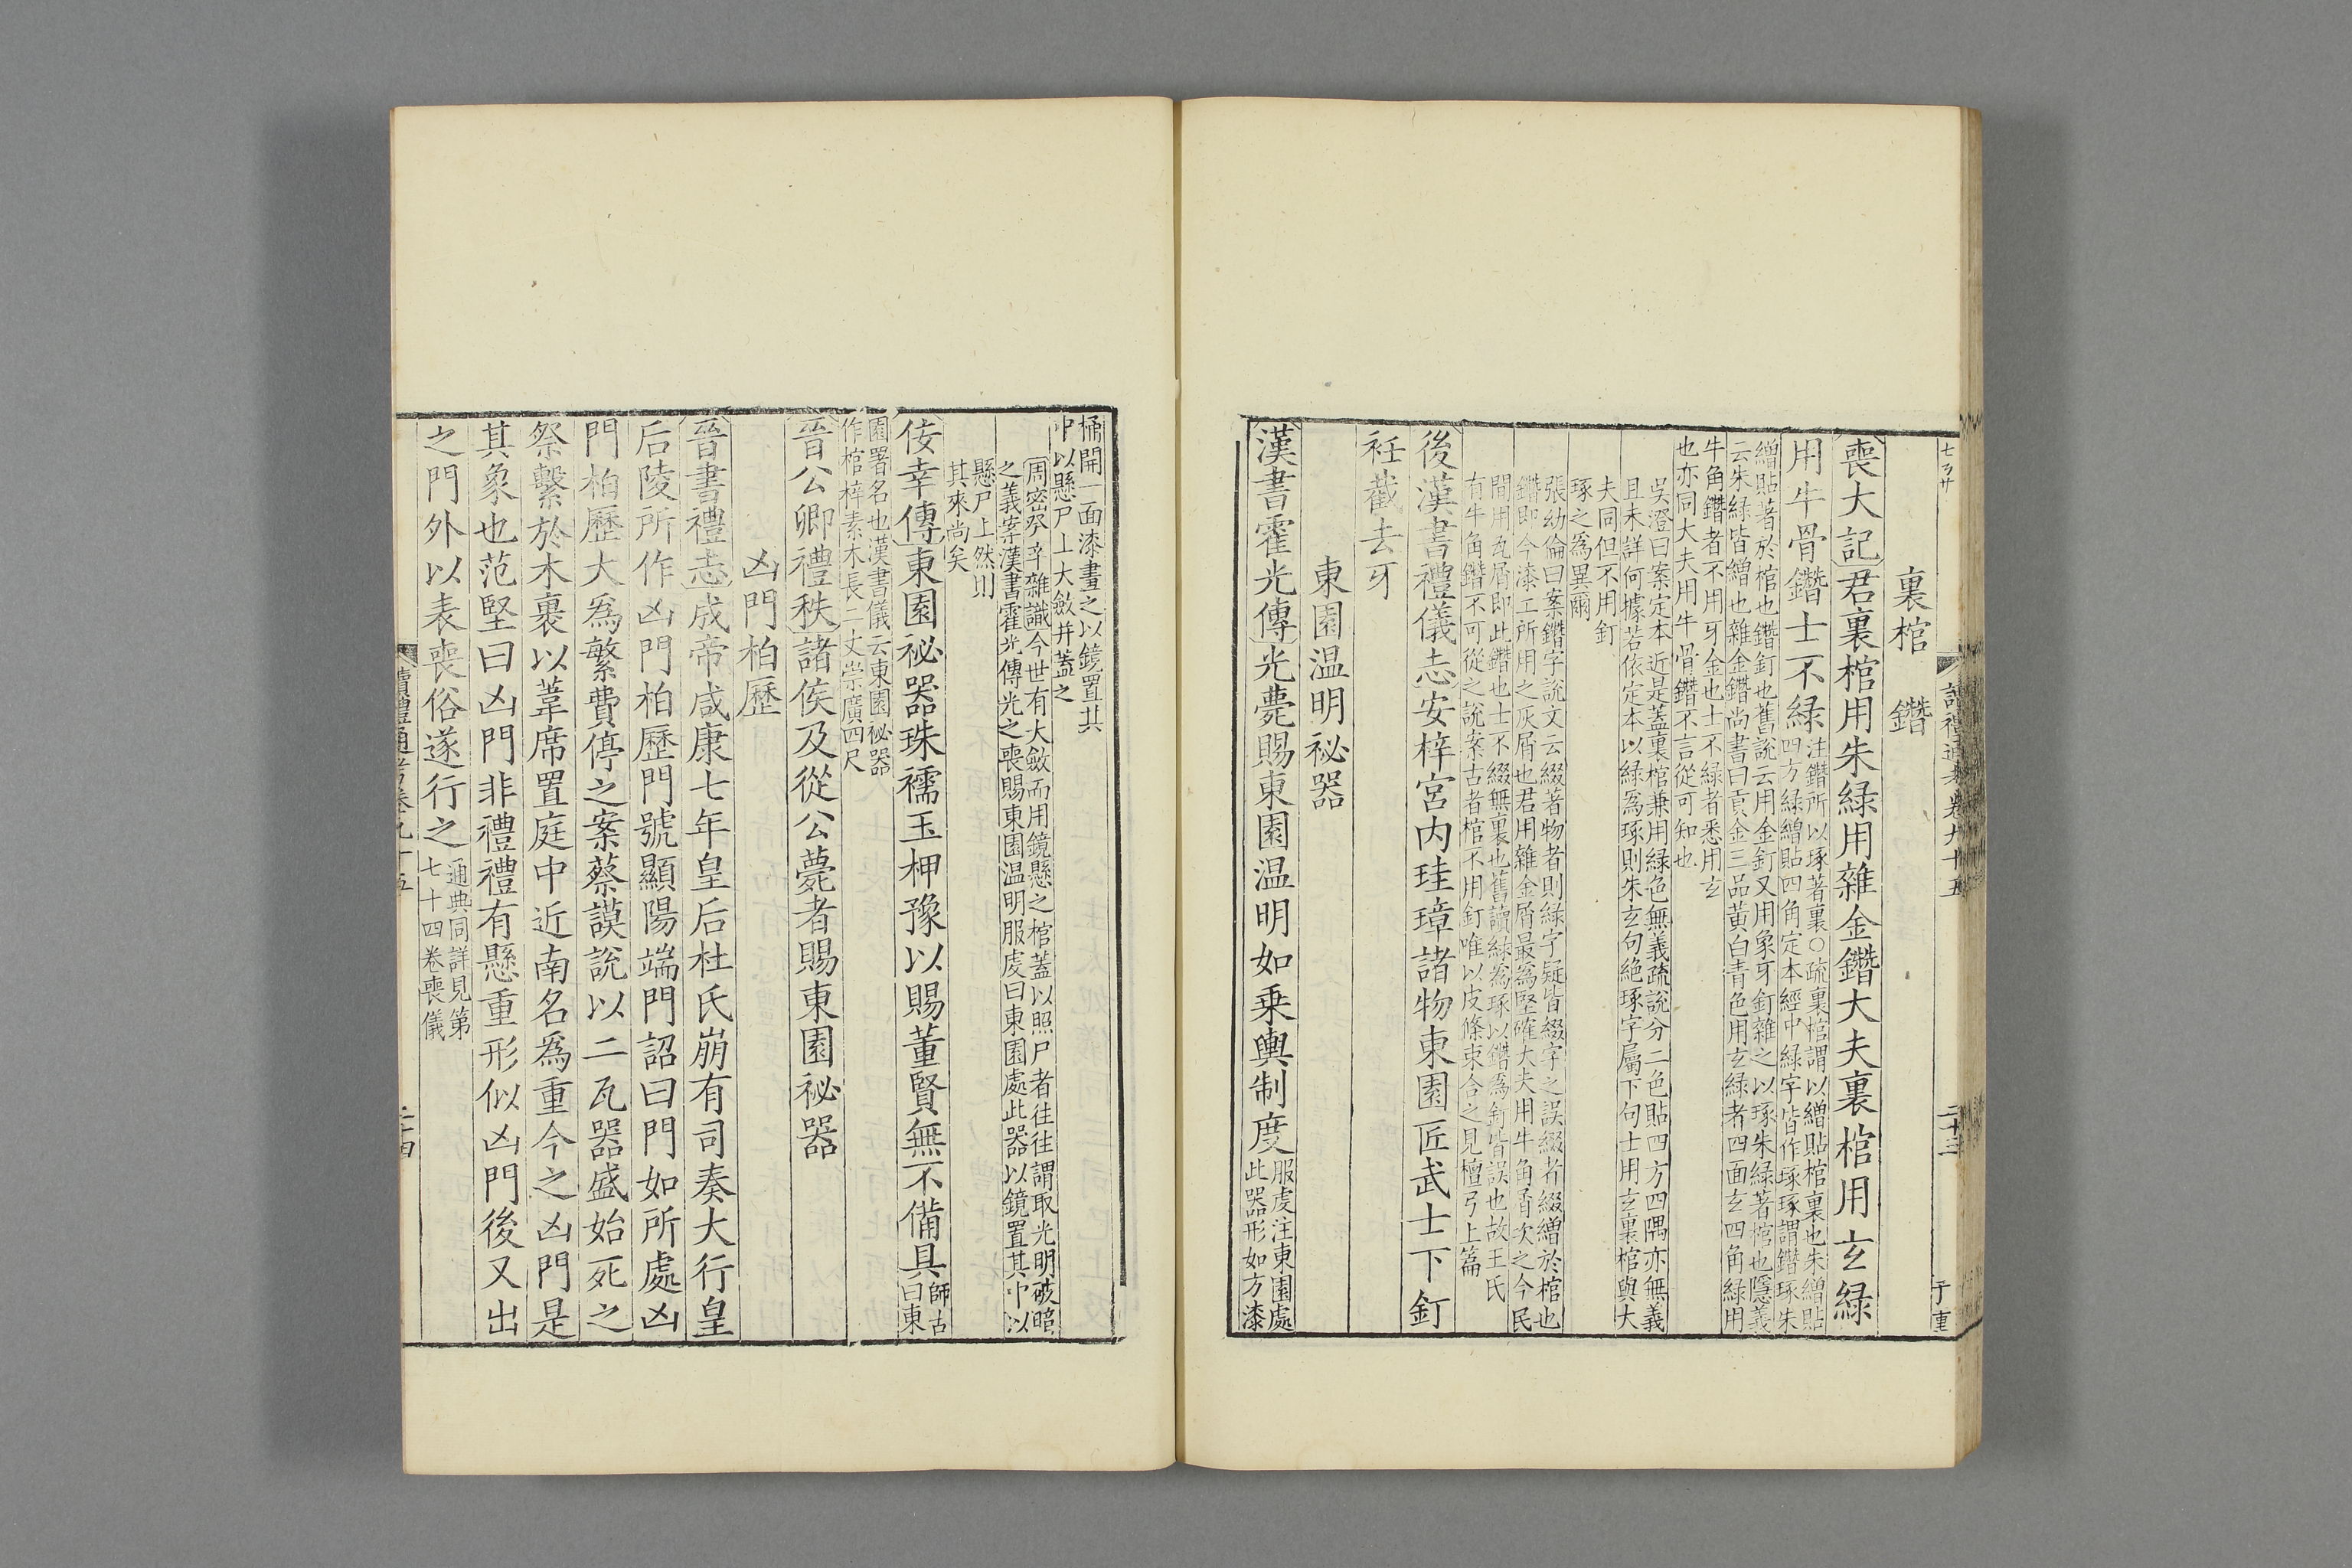 讀禮通考卷九十五 二十三 于重
裏棺 鐕
喪大記君裏棺用朱綠用雜金鐕大夫裏棺用玄綠
用牛骨鐕士不綠注鐕所以琢著裏○疏裏棺謂以繒貼棺裏也朱繒貼
四方綠繒貼四角定本經中綠字皆作琢琢謂鐕琢朱
繒貼著於棺也鐕釘也舊說云用金釘又用象牙釘雜之以琢朱綠著棺也隱義
云朱綠皆繒也雜金鐕尚書曰貢金三品黃白青色用玄綠者四面玄四角綠用
牛角鐕者不用牙金也士不綠者悉用玄
也亦同大夫用牛骨鐕不言從可知也
吳澄曰案定本近是蓋裏棺兼用綠色無義疏說分二色貼四方四隅亦無義
且未詳何據若依定本以綠爲琢則朱玄句絕琢字屬下句士用玄裏棺與大
夫同但不用釘
琢之爲異爾
張幼倫曰案鐕字說文云綴著物者則綠字疑皆綴字之誤綴者綴繒於棺也
鐕即今漆工所用之灰屑也君用雜金屑最爲堅確大夫用牛角者次之今民
間用瓦屑即此鐕也士不綴無裏也舊讀綠爲琢以鐕爲釘皆誤也故王氏
有牛角鐕不可從之說案古者棺不用釘唯以皮條束合之見檀弓上篇
後漢書禮儀志安梓宮內珪璋諸物東園匠武士下釘
衽截去牙
東園温明祕器
漢書霍光傳光薨賜東園温明如乗輿制度服虔注東園處
此器形如方漆
桶開一面漆畫之以鏡置其
中以懸尸上大斂并蓋之
周密癸辛雜識今世有大斂而用鏡懸之棺蓋以照尸者往往謂取光明破暗
之義案漢書霍光傳光之喪賜東園温明服虔曰東園處此器以鏡置其中以
懸尸上然則
其來尚矣
佞幸傳東園祕器珠襦玉柙豫以賜董賢無不備具師古
曰東
園署名也漢書儀云東園祕器
作棺梓素木長二丈崇廣四尺
晉公卿禮秩諸侯及從公薨者賜東園祕器
凶門柏歷
晉書禮志成帝咸康七年皇后杜氏崩有司奏大行皇
后陵所作凶門柏歷門號顯陽端門詔曰門如所處凶
門柏歷大爲繁費停之案蔡謨說以二瓦器盛始死之
祭繫於木裹以葦席置庭中近南名爲重今之凶門是
其象也范堅曰凶門非禮禮有懸重形似凶門後又出
之門外以表喪俗遂行之通典同詳見第
七十四卷喪儀
讀禮通考卷九十五 二十四